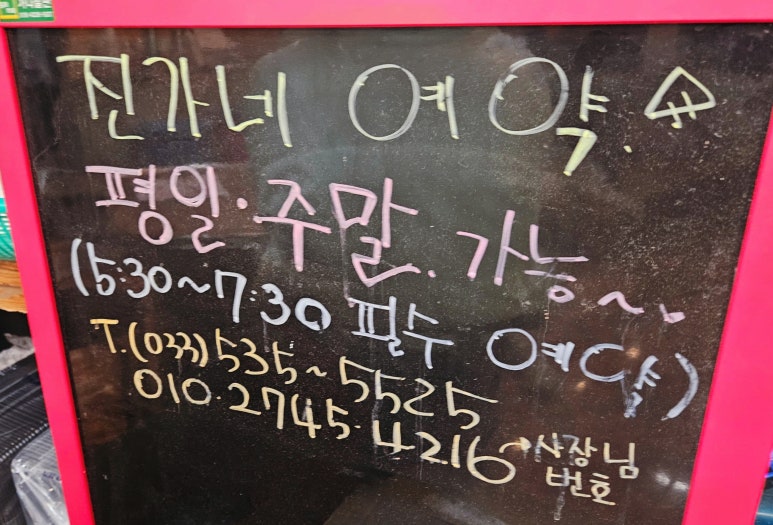 진가네 예약.
평일·주말. 가능~
(5:30~7:30 필수 예약)
T.(033)535~5525
010·2745·4216→사장님
번호